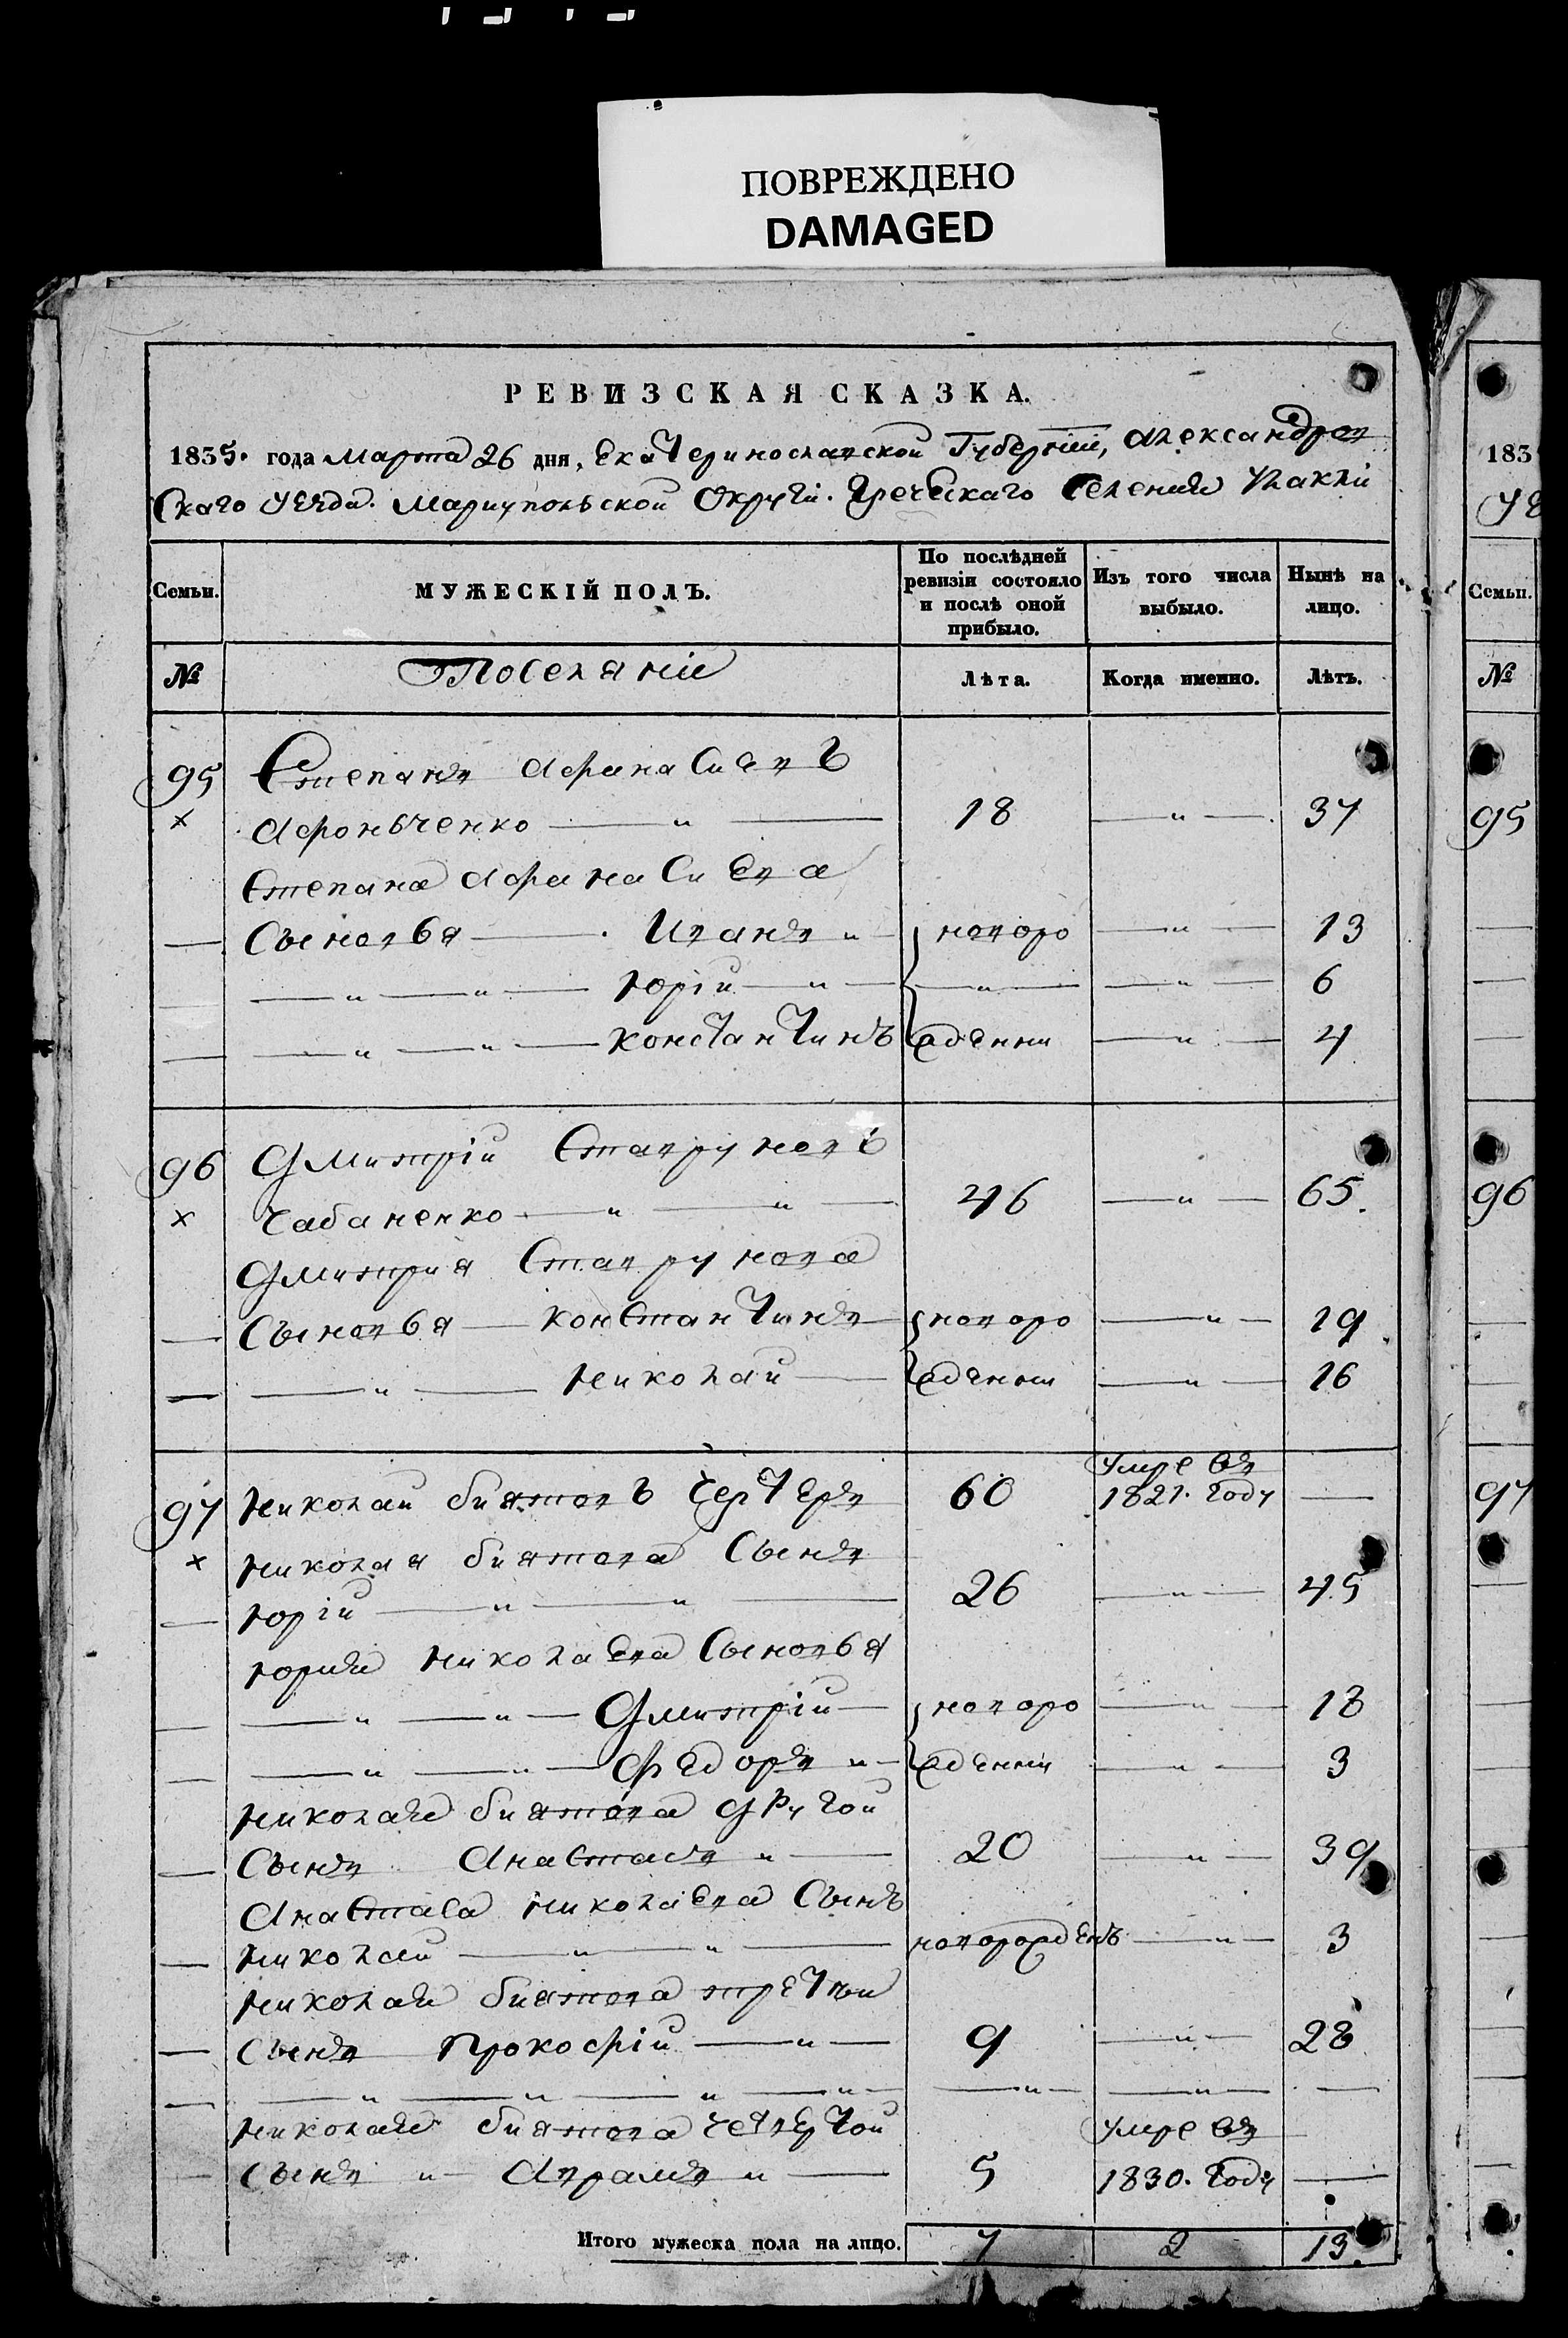 ПОВРЕЖДЕНО
DAMAGED
РЕВИЗСКАЯ СКАЗКА.
1835. года Марта 26 дня, Екатеринославской Губернии, Александров
скаго уезда. Мариупольской Округи. Греческаго Селения
Семьи.
МУЖЕСКІЙ ПОЛЪ.
По послѣдней ревизіи состояло и послѣ оной прибыло.
Изъ того числа выбыло.
Нынѣ на лицо.
№
Поселяніе
Лѣта.
Когда именно.
Лѣтъ.
95 Степанъ Афанасиевъ
× Афонъченко — " — 18 — " — 37
Степана Афанасиева
— Сыновья — Иванъ " — новоро — " — 13
— " — " — Юрій — " — — " — — " — 6
— " — " — Константинъ жденни — " — 4
96 Дмитрій Ставруновъ
× Чабаненко — " — " — 46 — " — 65.
Дмитрия Ставрунова
— Сыновья — Константинъ — новоро — " — 19
— — " — Николай — жденни — " — 16
97 Николай биятовъ Чертеръ 60 Умре въ 1821. году —
× Николая биятова Сынъ
— Юрій — " — " — 26 — " — 45
Юрия Николаева Сыновья
— — " — " — Дмитрій — новоро — " — 18
— — " — " — Федоръ " — жденни — " — 3
Николая биятова другой
— Сынъ Анастасъ " — 20 — " — 39
Анастаса Николаева Сынъ
— Николай — " — " — новорожденъ — " — 3
Николая биятова третьи
— Сынъ Прокофій — " — 9 — " — 28
— — " — " — " — " — — " — — " — —
Николая биятова четвертой Умре въ
— Сынъ " — Аврамъ " — 5 1830. году —
Итого мужеска пола на лицо. 7 2 13.
183
УЕ
Семьи.
№
95
96
97